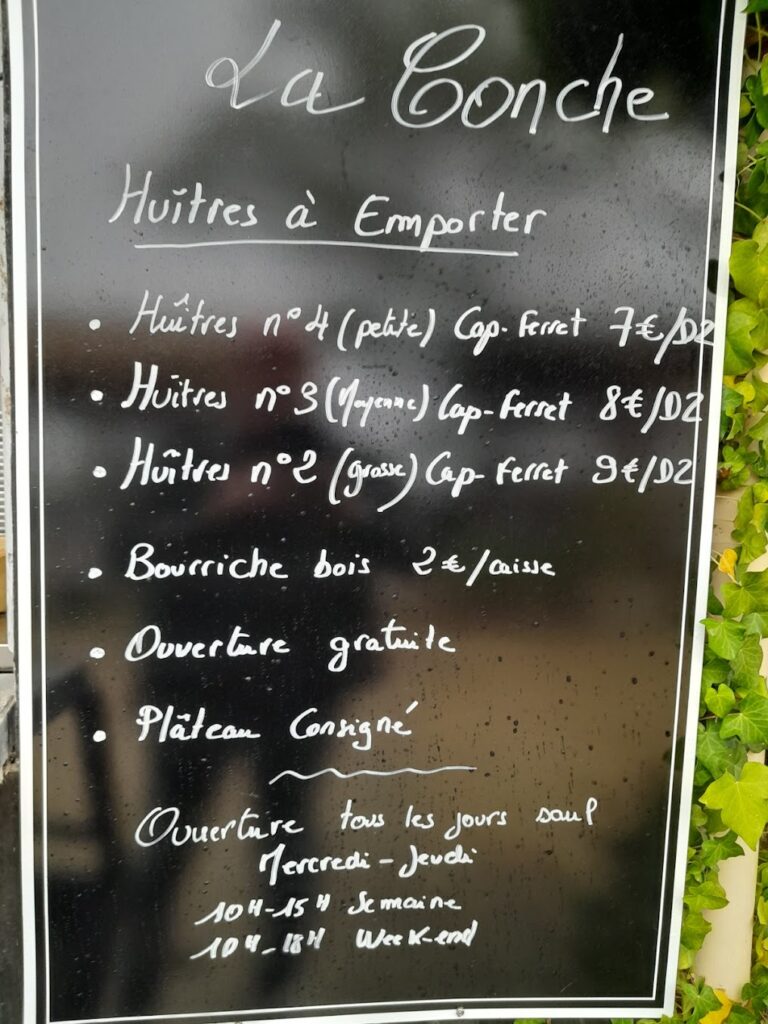 La Conche
Huîtres à Emporter
• Huîtres n°4 (petite) Cap-Ferret 7€/DZ
• Huîtres n°3 (Moyenne) Cap-Ferret 8€/DZ
• Huîtres n°2 (grosse) Cap-Ferret 9€/DZ
• Bourriche bois 2€/caisse
• Ouverture gratuite
• Plâteau Consigné
Ouverture tous les jours sauf
Mercredi - Jeudi
10H-15H Semaine
10H-18H Week-end